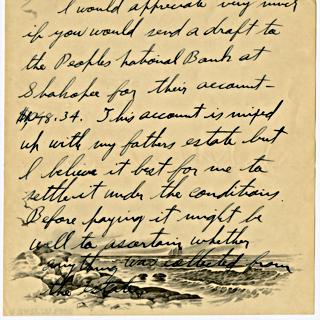 I would appreciate very much
if you would send a draft to
the Peoples National Bank at
Shakopee for their account—
48.34. This account is mixed
up with my fathers estate but
I believe it best for me to
settle it under the conditions.
Before paying it might be
well to asertain whether
anything was collected from
the